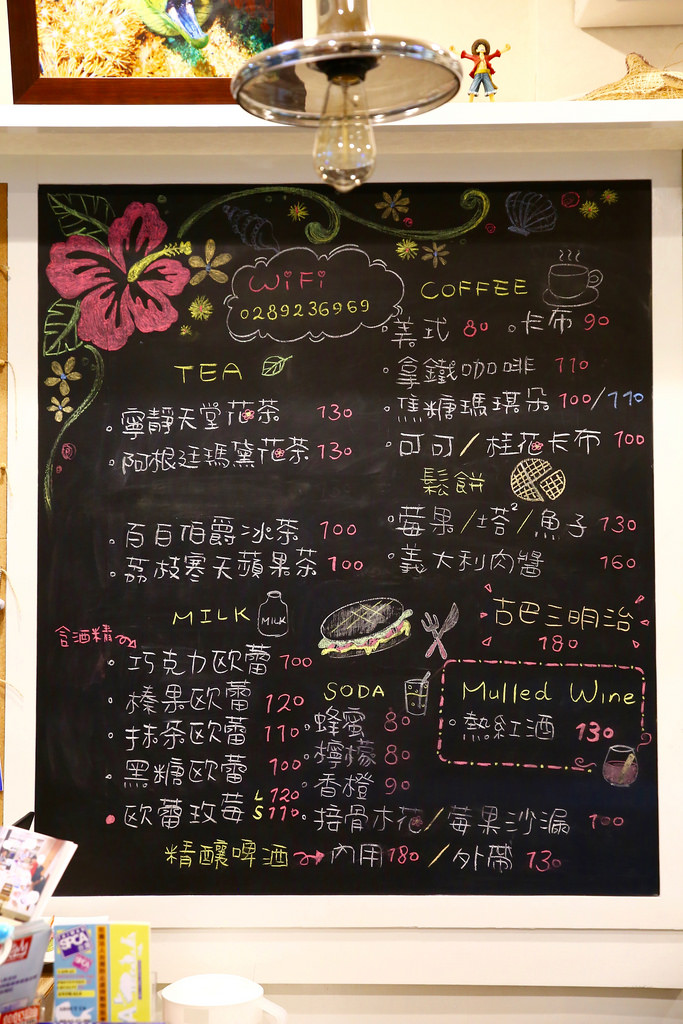 WiFi
0289236969
COFFEE
美式 80 。卡布 90
拿鐵咖啡 110
焦糖瑪琪朵 100/110
可可/桂花卡布 100
TEA
寧靜天堂花茶 130
阿根廷瑪黛花茶 130
百日伯爵冰茶 100
荔枝寒天蘋果茶 100
鬆餅
莓果/塔²/魚子 130
義大利肉醬 160
古巴三明治
180
MILK
MILK
含酒精
巧克力歐蕾 100
榛果歐蕾 120
抹茶歐蕾 110
黑糖歐蕾 100
歐蕾玫莓 L 120
S 110
SODA
蜂蜜 80
檸檬 80
香橙 90
接骨木花/莓果沙漏 100
Mulled Wine
熱紅酒 130
精釀啤酒 → 內用 180 / 外帶 130
SPCA